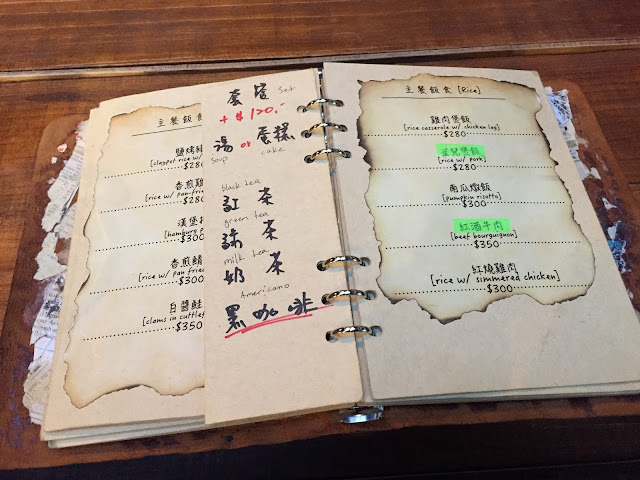 主餐飯食
鹽烤
[claypot rice w/
$280
香煎雞
[rice w/ pan-frie
$280
漢堡
[hamburg p
$300
香煎鯖
[rice w/ pan frie
$300
白醬鮭
[clams in cuttlef
$350
套餐 set
+ $120.-
湯 or 蛋糕
soup cake
black tea
紅茶
green tea
綠茶
milk tea
奶茶
Americano
黑咖啡
主餐飯食 [Rice]
雞肉煲飯
[rice casserole w/ chicken leg]
$280
煲飯
[rice w/ pork]
$280
南瓜燉飯
[pumpkin risotto]
$300
紅酒牛肉
[beef bourguignon]
$350
紅燒雞肉
[rice w/ simmered chicken]
$300